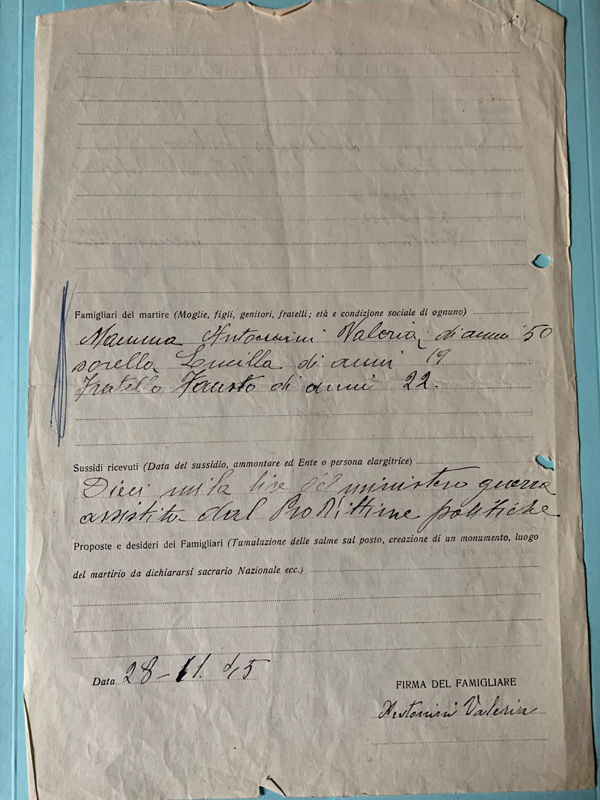 Famigliari del martire (Moglie, figli, genitori, fratelli; età e condizione sociale di ognuno)
Mamma Antonini Valeria di anni 50
sorella Lucilla di anni 19
Fratello Fausto di anni 22.
Sussidi ricevuti (Data del sussidio, ammontare ed Ente o persona elargitrice)
Dieci mila lire del ministero guerra
assistita dal Pro Vittime politiche
Proposte e desideri dei Famigliari (Tumulazione delle salme sul posto, creazione di un monumento, luogo
del martirio da dichiararsi sacrario Nazionale ecc.)
Data 28-11.45
FIRMA DEL FAMIGLIARE
Antonini Valeria